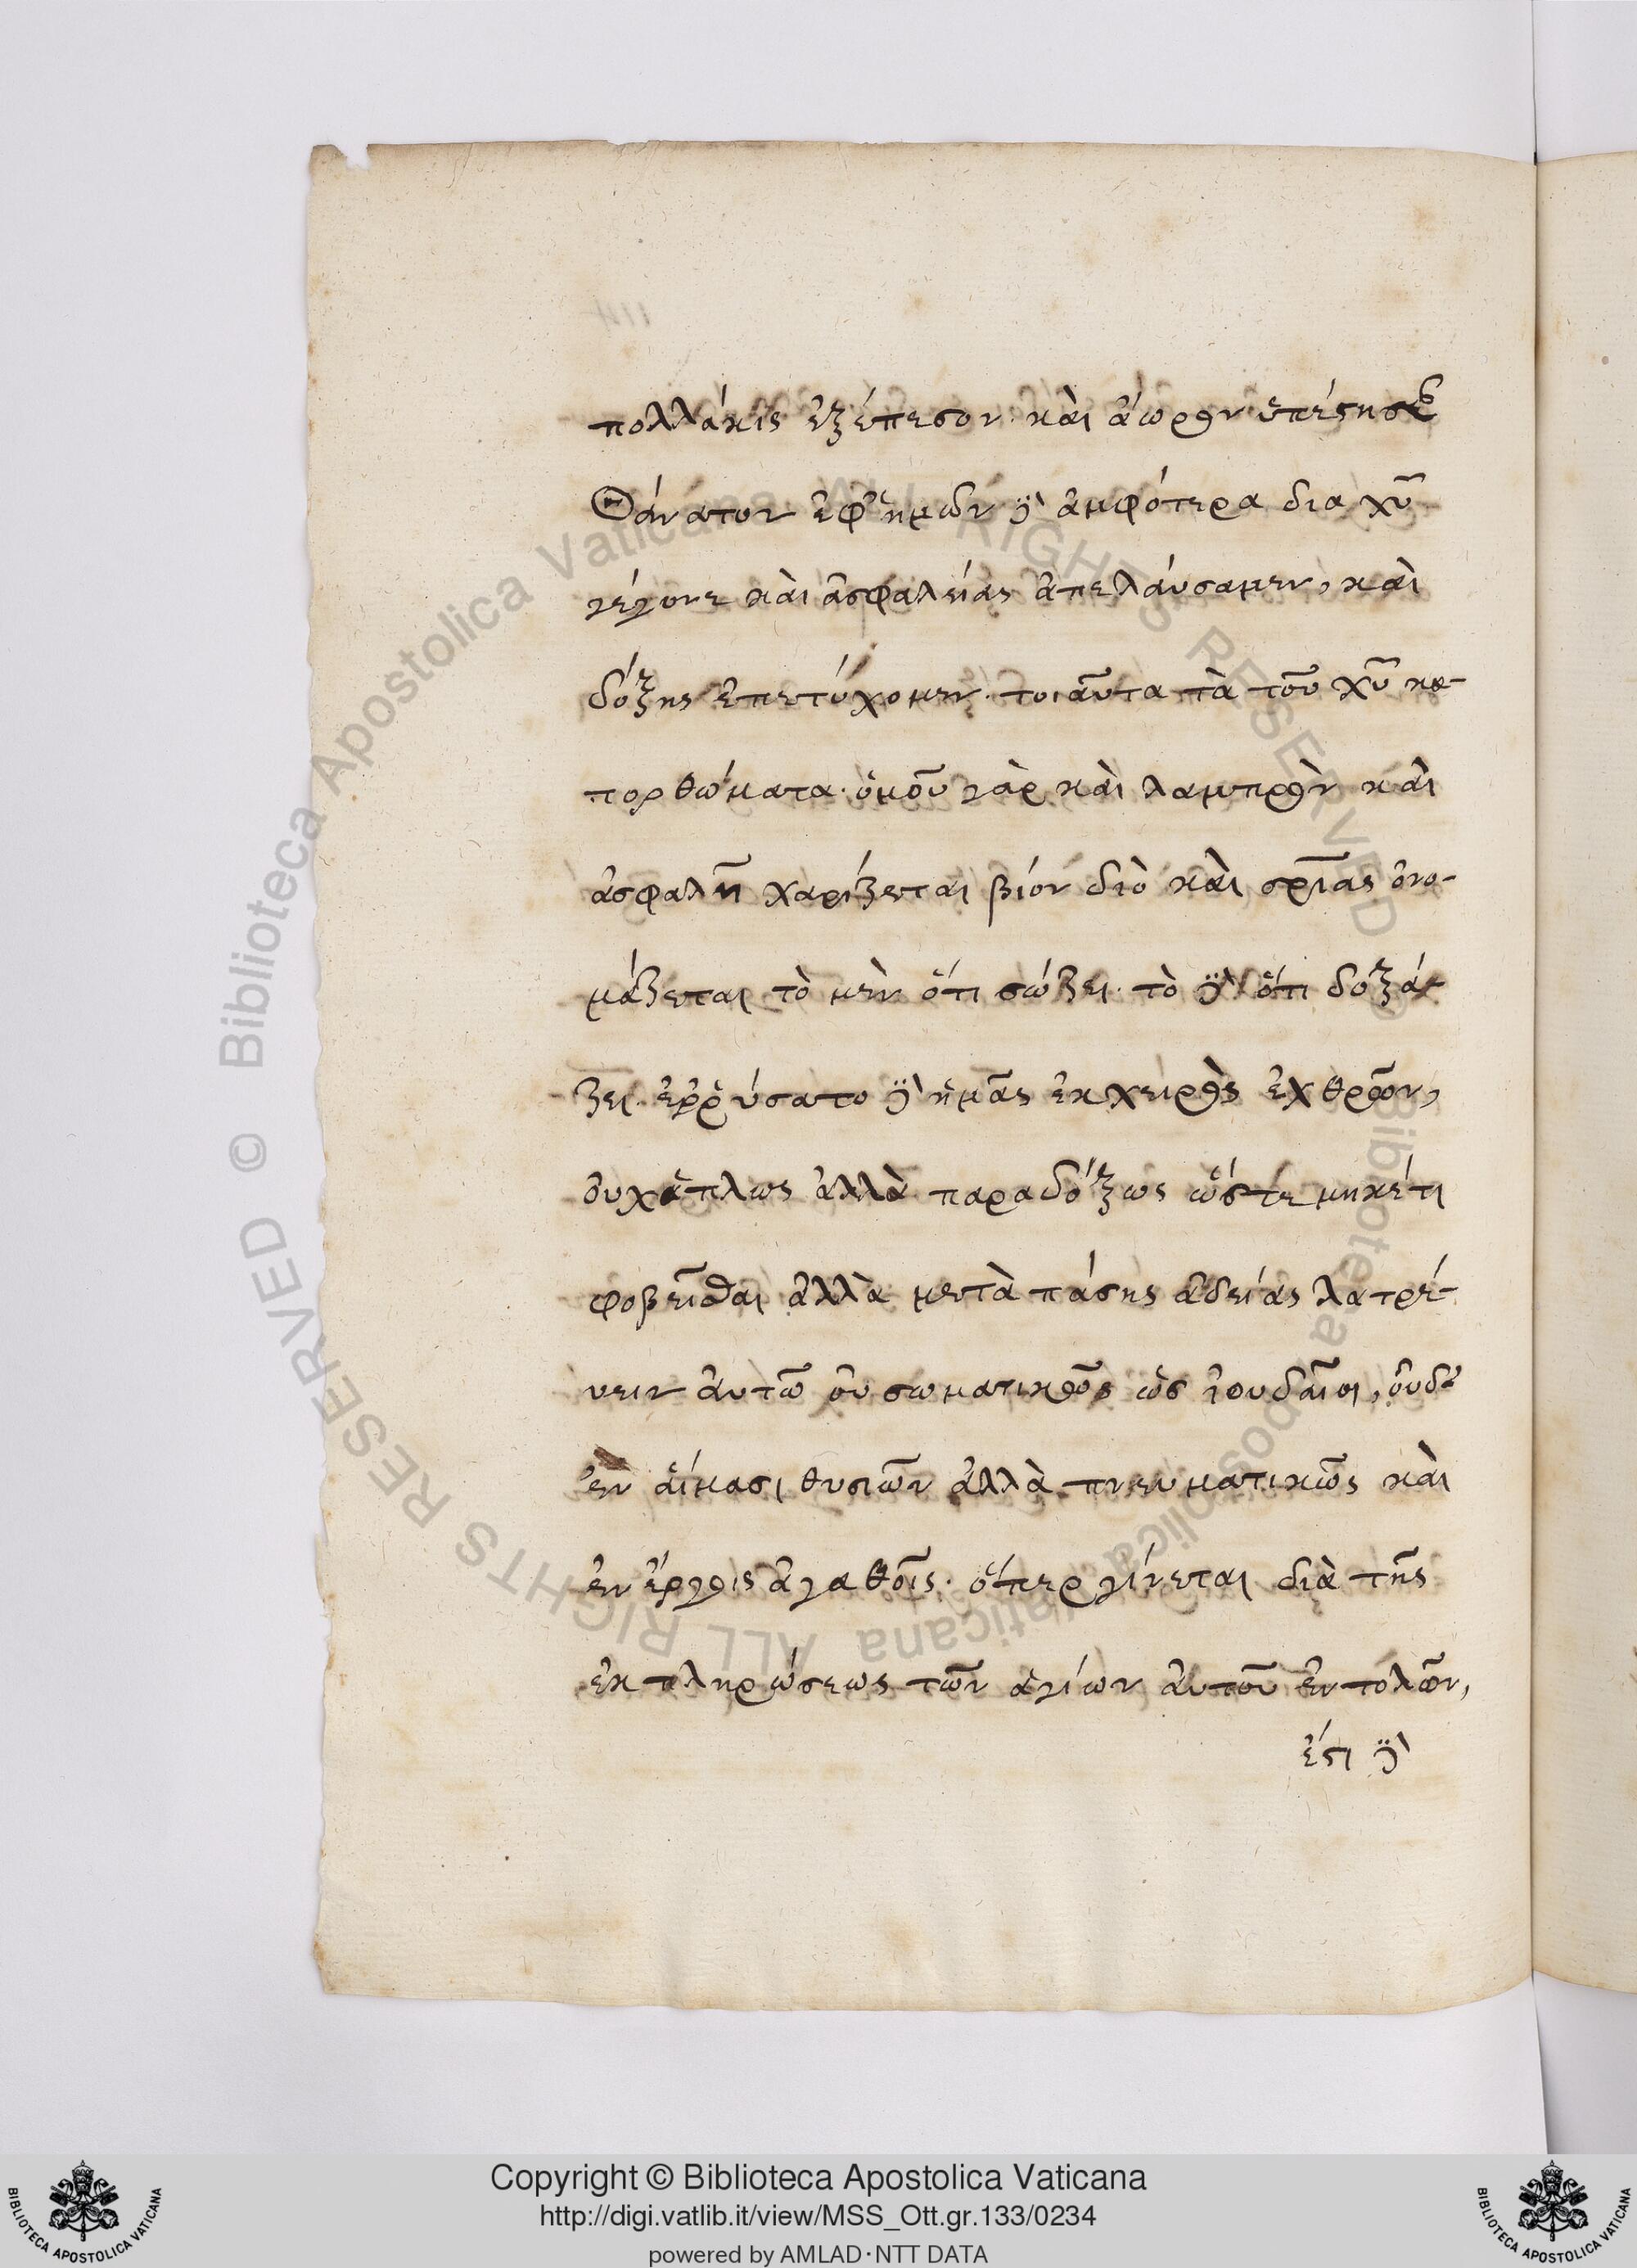 πολλάκις ἐξέπεσον· καὶ ἄωρον ὑπέστησαν
Θάνατον ἐφ' ἡμῶν δὲ ἀμφότερα δια χ̅υ̅
γέγονε καὶ ἀσφαλείας ἀπελάυσαμεν, καὶ
δόξης ἐπετύχομεν· τοιαῦτα τὰ τοῦ χ̅υ̅ κα-
τορθώματα· ὁμοῦ γὰρ καὶ λαμπρὸν καὶ
ἀσφαλῆ χαρίζεται βίον διὸ καὶ σ̅ρ̅ιας ὀνο-
μάζεται τὸ μὲν ὅτι σώζει· τὸ δὲ ὅτι δοξά-
ζει· ἐῤῥύσατο δὲ ἡμᾶς ἐκ χειρὸς ἐχθρῶν,
ὀυχ ἁπλως ἀλλὰ παραδόξως ὥστε μηκέτι
φοβεῖσθαι ἀλλὰ μετὰ πάσης ἀδείας λατρέ-
υειν ἀυτῶ ὀυ σωματικῶς ὡς ἰουδαῖοι, ὀυδὲ
ἐν ἅιμασι θυσιῶν ἀλλὰ πνευματικῶς καὶ
ἐν ἔργοις ἀγαθοῖς· ὅπερ γίνεται διὰ τῆς
ἐκπληρώσεως τῶν ἁγίων ἀυτοῦ ἐντολῶν,
ἔστι δὲ
© Biblioteca Apostolica Vaticana ALL RIGHTS RESERVED
© Biblioteca Apostolica Vaticana ALL RIGHTS RESERVED
Copyright © Biblioteca Apostolica Vaticana
http://digi.vatlib.it/view/MSS_Ott.gr.133/0234
powered by AMLAD·NTT DATA
BIBLIOTECA APOSTOLICA VATICANA
BIBLIOTECA APOSTOLICA VATICANA